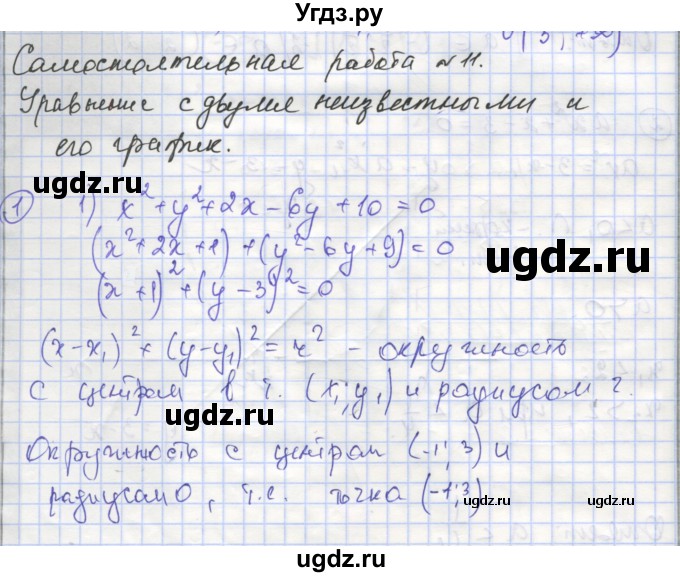 Угдз.ру
Самостоятельная работа №11.
Уравнение с двумя неизвестными и
его график.
ugdz.ru
1 1) x²+y²+2x-6y+10=0
ugdz.ru
(x²+2x+1)+(y²-6y+9)=0
ugdz.ru
(x+1)²+(y-3)²=0
(x-x₁)²+(y-y₁)²=r² - окружность
с центром в т. (x₁;y₁) и радиусом r.
ugdz.ru
Окружность с центром (-1;3) и
радиусом 0, т.е. точка (-1;3)
ugdz.ru ugdz.ru
ugdz.ru